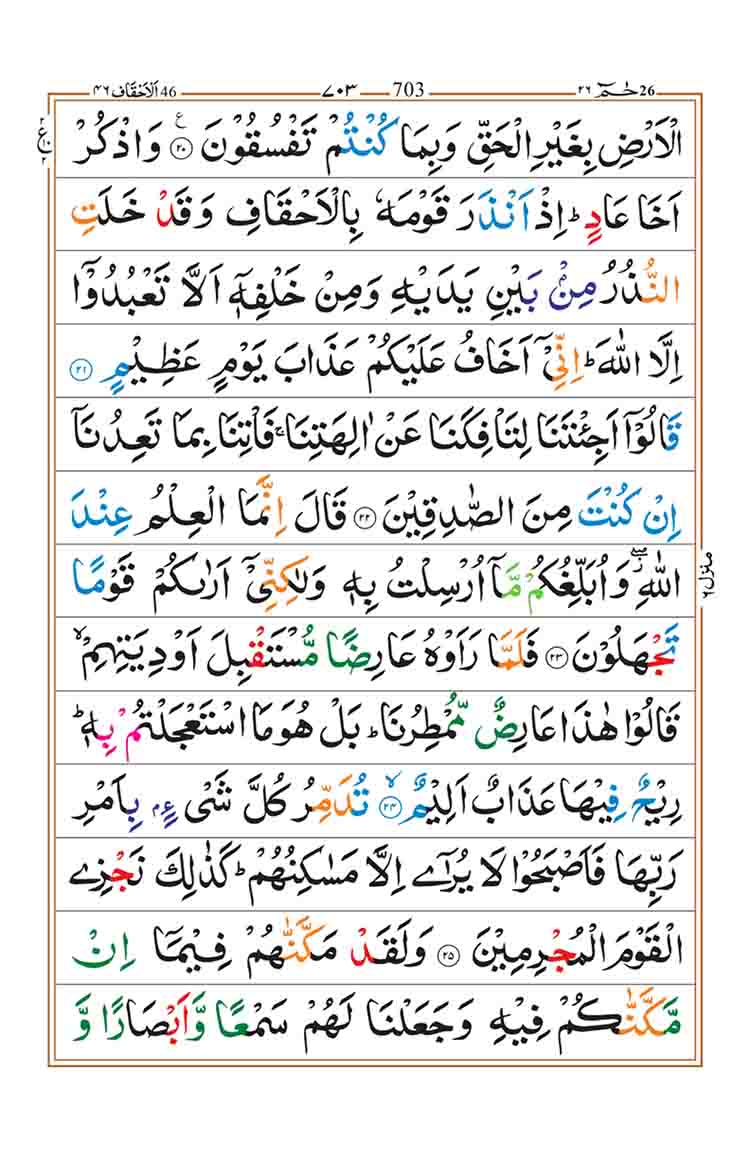 26 حٰمٓ ٢٦ 703 ٧٠٣ 46 اَلْاَحْقَاف ٤٦
الْاَرْضِ بِغَيْرِ الْحَقِّ وَبِمَا كُنْتُمْ تَفْسُقُوْنَ ۲۰ ع وَاذْكُرْ
ع
اَخَا عَادٍ ؕ اِذْ اَنْذَرَ قَوْمَهٗ بِالْاَحْقَافِ وَقَدْ خَلَتِ
النُّذُرُ مِنْۢ بَيْنِ يَدَيْهِ وَمِنْ خَلْفِهٖۤ اَلَّا تَعْبُدُوْۤا
اِلَّا اللّٰهَ ؕ اِنِّىْۤ اَخَافُ عَلَيْكُمْ عَذَابَ يَوْمٍ عَظِيْمٍ ۲۱
قَالُوْۤا اَجِئْتَنَا لِتَاْفِكَنَا عَنْ اٰلِهَتِنَا ۚ فَاْتِنَا بِمَا تَعِدُنَاۤ
اِنْ كُنْتَ مِنَ الصّٰدِقِيْنَ ۲۲ قَالَ اِنَّمَا الْعِلْمُ عِنْدَ
اللّٰهِ ۖ٘ وَاُبَلِّغُكُمْ مَّاۤ اُرْسِلْتُ بِهٖ وَلٰكِنِّىْۤ اَرٰٮكُمْ قَوْمًا
منزل ٦
تَجْهَلُوْنَ ۲۳ فَلَمَّا رَاَوْهُ عَارِضًا مُّسْتَقْبِلَ اَوْدِيَتِهِمْ ۙ
قَالُوْا هٰذَا عَارِضٌ مُّمْطِرُنَا ؕ بَلْ هُوَ مَا اسْتَعْجَلْتُمْ بِهٖ ؕ
رِيْحٌ فِيْهَا عَذَابٌ اَلِيْمٌ ۙ ۲۴ تُدَمِّرُ كُلَّ شَىْءٍۢ بِاَمْرِ
رَبِّهَا فَاَصْبَحُوْا لَا يُرٰٓى اِلَّا مَسٰكِنُهُمْ ؕ كَذٰلِكَ نَجْزِى
الْقَوْمَ الْمُجْرِمِيْنَ ۲۵ وَلَقَدْ مَكَّنّٰهُمْ فِيْمَاۤ اِنْ
مَّكَّنّٰكُمْ فِيْهِ وَجَعَلْنَا لَهُمْ سَمْعًا وَّاَبْصَارًا وَّ